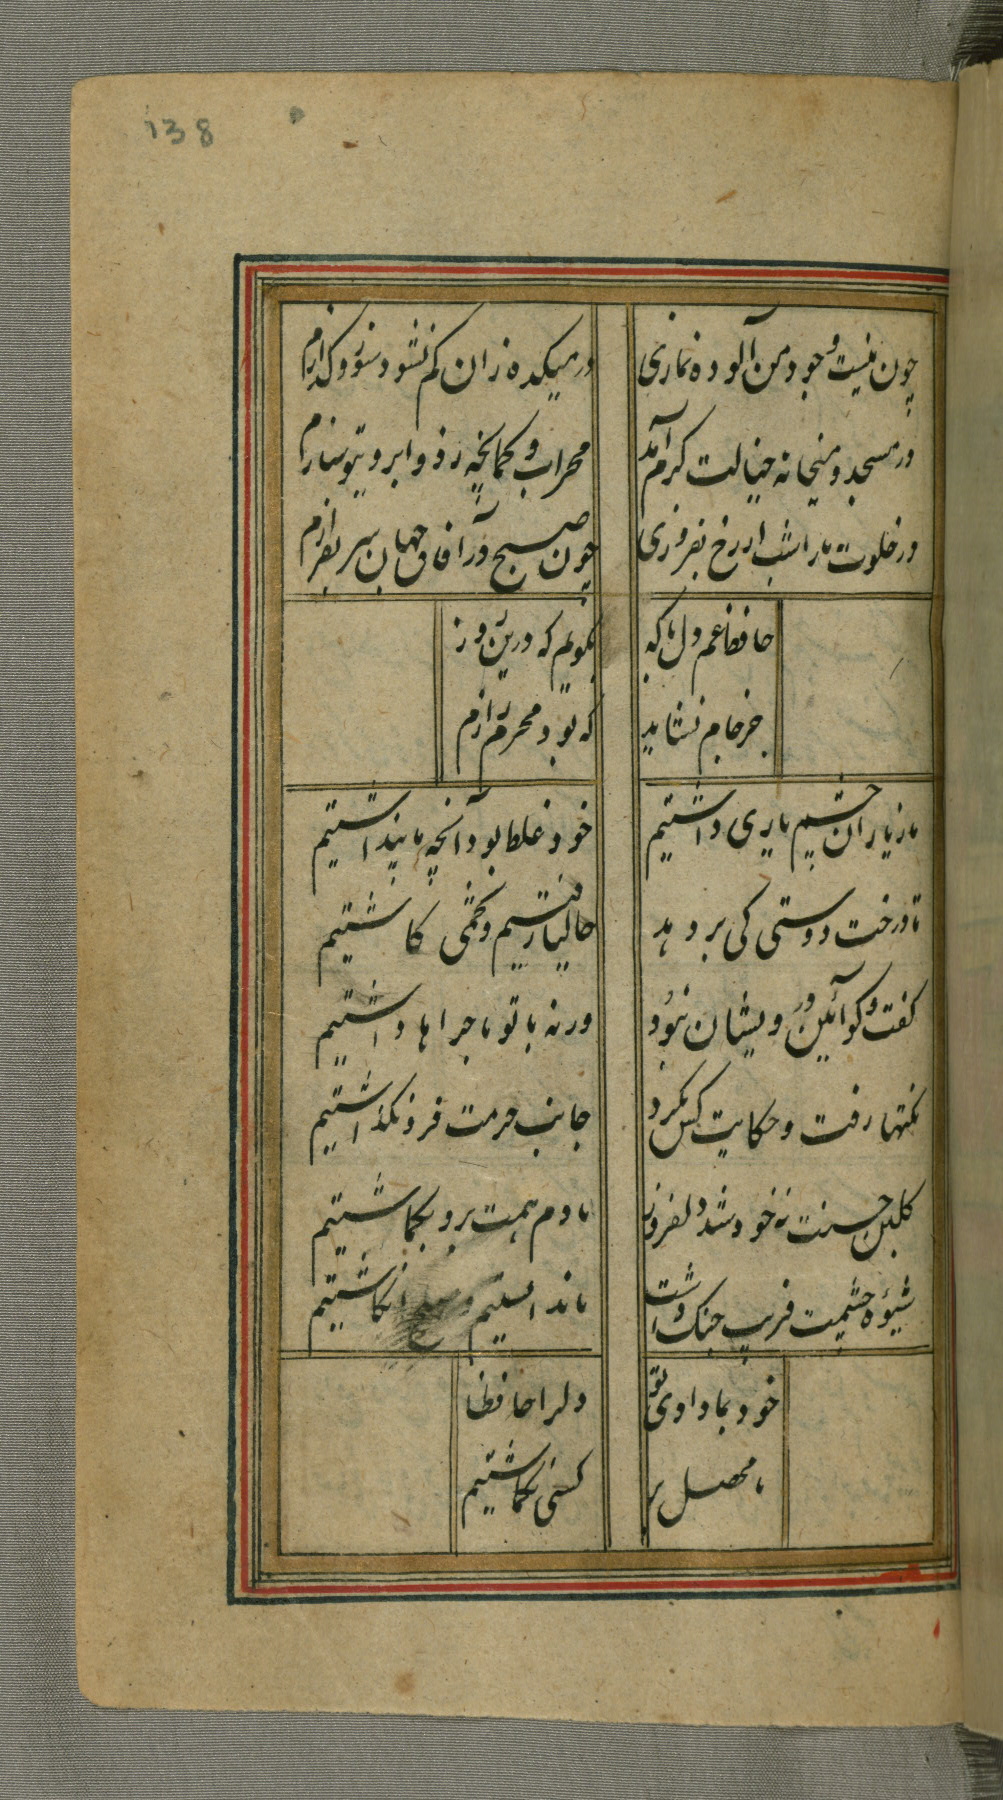 138
چون نیست وجود من آلوده نمازی
در میکده زان کم نشود سوز و کدازم
در مسجد و میخانه خیالت کرم آمد
محراب و کمانچه ز دو ابروی تو سازم
در خلوت ما را شب ار رخ بفروزی
چون صبح در آفاق جهان سر بفرازم
حافظ غم دل با که
بکویم که درین دور
جز جام نشاید
که بود محرم رازم
ما ز یاران چشم یاری داشتیم
خود غلط بود آنچه ما پنداشتیم
تا درخت دوستی کی بر دهد
حالیا رفتیم و تخمی کاشتیم
کفت و کو آئین درویشان نبود
ورنه با تو ماجراها داشتیم
نکتها رفت و حکایت کس نکرد
جانب حرمت فرو نکذاشتیم
کلبن حسنت نه خود شد دلفروز
ما دم همت برو بکماشتیم
شیوه چشمت فریب جنک داشت
ما ندانستیم و صلح انکاشتیم
خود بما دادی تو
دل را حافظا
ما محصل بر
کسی نکماشتیم